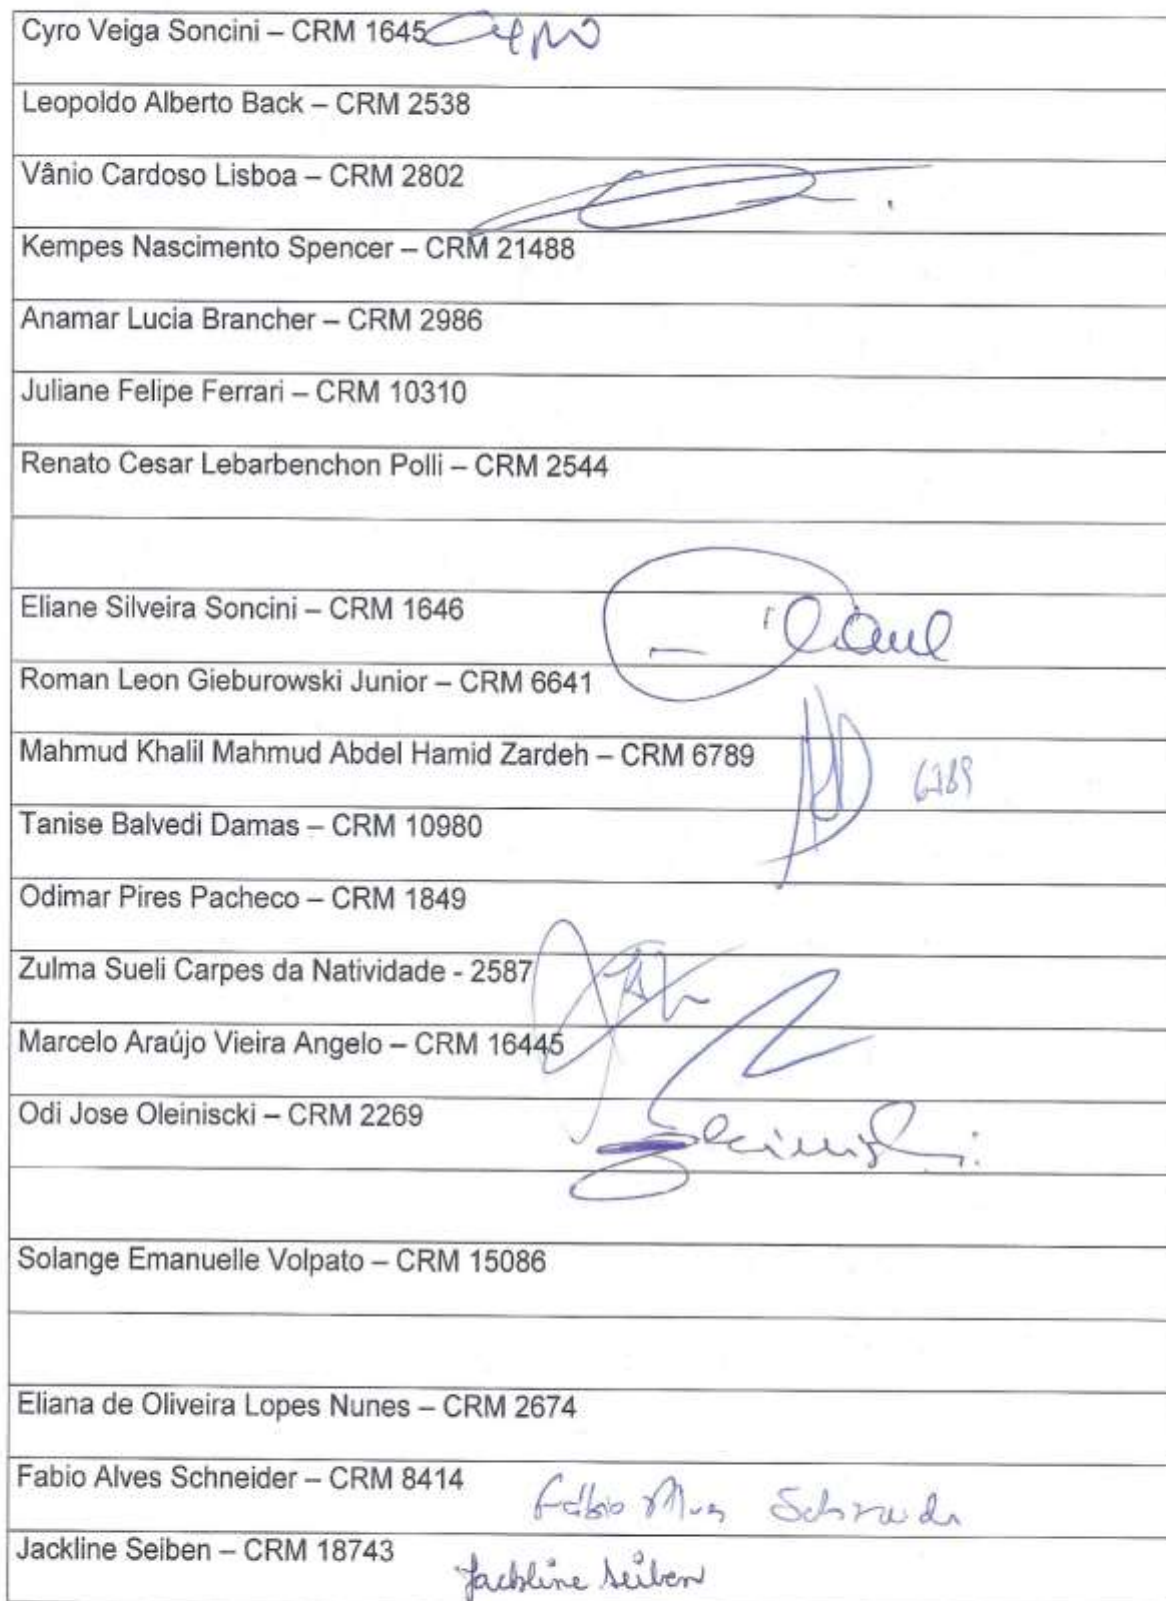 Cyro Veiga Soncini – CRM 1645 Cyro
Leopoldo Alberto Back – CRM 2538
Vânio Cardoso Lisboa – CRM 2802
Kempes Nascimento Spencer – CRM 21488
Anamar Lucia Brancher – CRM 2986
Juliane Felipe Ferrari – CRM 10310
Renato Cesar Lebarbenchon Polli – CRM 2544
Eliane Silveira Soncini – CRM 1646
Roman Leon Gieburowski Junior – CRM 6641
Mahmud Khalil Mahmud Abdel Hamid Zardeh – CRM 6789 6789
Tanise Balvedi Damas – CRM 10980
Odimar Pires Pacheco – CRM 1849
Zulma Sueli Carpes da Natividade - 2587
Marcelo Araújo Vieira Angelo – CRM 16445
Odi Jose Oleiniscki – CRM 2269
Solange Emanuelle Volpato – CRM 15086
Eliana de Oliveira Lopes Nunes – CRM 2674
Fabio Alves Schneider – CRM 8414 Fábio Alves Schneider
Jackline Seiben – CRM 18743 Jackline Seiben